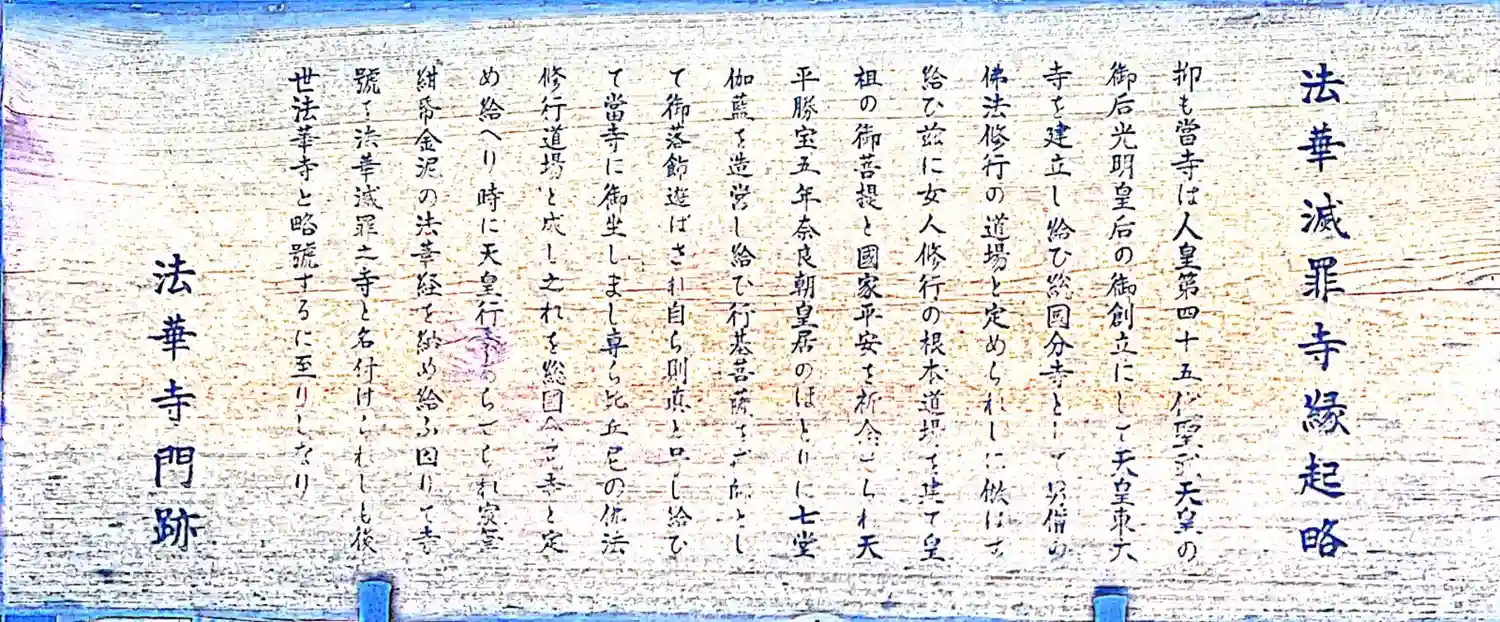 法華滅罪寺縁起略
抑も當寺は人皇第四十五代聖武天皇の
御后光明皇后の御創立にして天皇東大
寺を建立し給ひ総國分寺として男僧の
佛法修行の道場と定められしに倣はす
給ひ茲に女人修行の根本道場を建て皇
祖の御菩提と國家平安を祈念せられ天
平勝宝五年奈良朝皇居のほとりに七堂
伽藍を造営し給ひ行基菩薩を 師とし
て御落飾遊ばされ自ら則真と号し給ひ
て當寺に御坐しまし専ら比丘尼の佛法
修行道場と成し之れを総國分尼寺と定
め給へり時に天皇行 あらせられ宸筆
紺帋金泥の法華経を納め給ふ因りて寺
號を法華滅罪之寺と名付けられしも後
世法華寺と略號するに至りしなり
法華寺門跡